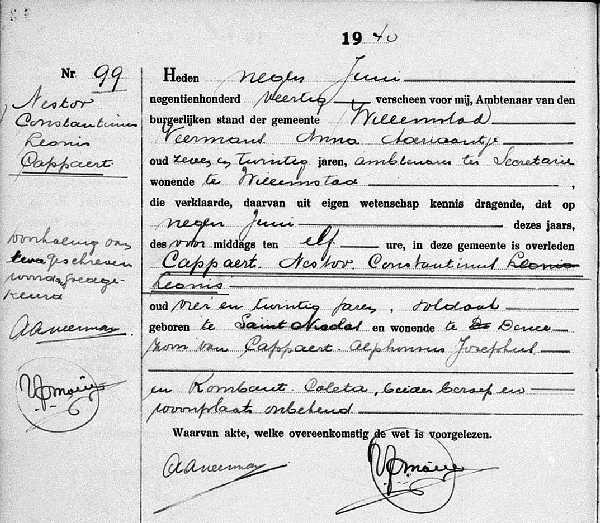 1940
Nr 99
Nestor
Constantinus
Leonis
Cappaert
Heden negen Juni
negentienhonderd veertig verscheen voor mij, Ambtenaar van den
burgerlijken stand der gemeente Willemstad
Veermans Anna Adriaantje
oud zeven en twintig jaren, ambtenares ter Secretarie
wonende te Willemstad ,
die verklaarde, daarvan uit eigen wetenschap kennis dragende, dat op
negen Juni dezes jaars,
des voor middags ten elf ure, in deze gemeente is overleden
Cappaert Nestor Constantinus Leonis
Leonis
oud vier en twintig jaren, soldaat
geboren te Saint en wonende te
zoon van Cappaert Alphonsus Josephus
en Rombaut Coleta, beider beroep en
woonplaats onbekend
Waarvan akte, welke overeenkomstig de wet is voorgelezen.
Doorhaling van
geschreven